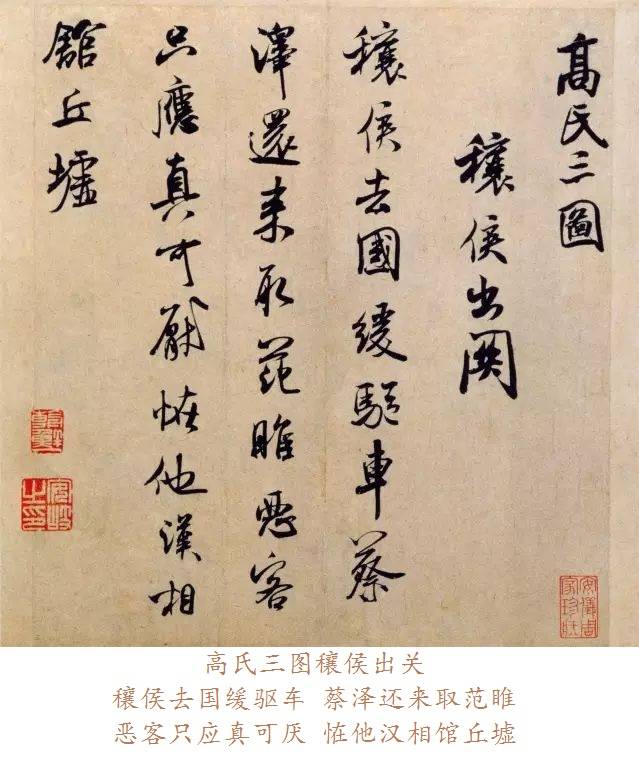 髙氏三圖
穰侯出関
穰侯去國緩駈車蔡
澤還来取范睢惡客
只應真可厭恠他漢相
舘丘墟
安儀周家珍藏
安岐之印
高氏三图穰侯出关
穰侯去国缓驱车 蔡泽还来取范睢
恶客只应真可厌 恠他汉相馆丘墟